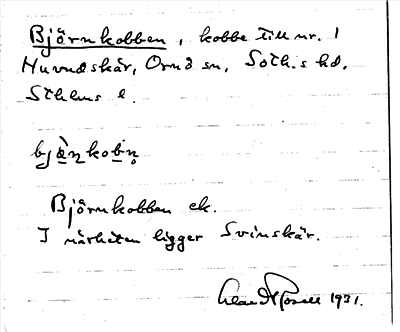 Björnkobben, kobbe till nr. 1
Huvudskär, Ornö sn, Soth.s hd.
Sthlms l.
bjä̀ṇkobn̥
Björnkobben ek.
I närheten ligger Svinskär.
1931.